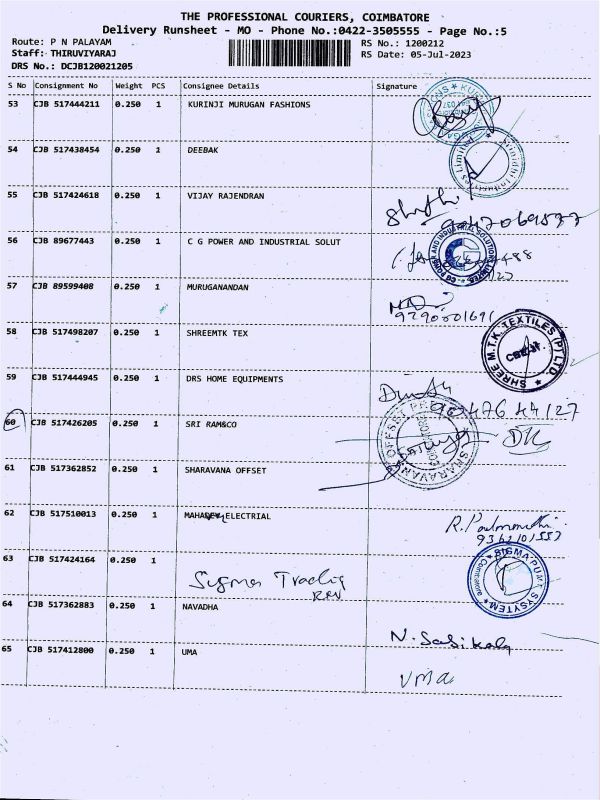 THE PROFESSIONAL COURIERS, COIMBATORE
Delivery Runsheet - MO - Phone No.:0422-3505555 - Page No.:5
Route: P N PALAYAM RS No.: 1200212
Staff: THIRUVIYARAJ RS Date: 05-Jul-2023
DRS No.: DCJB120021205
S No Consignment No Weight PCS Consignee Details Signature
53 CJB 517444211 0.250 1 KURINJI MURUGAN FASHIONS
54 CJB 517438454 0.250 1 DEEBAK
55 CJB 517424618 0.250 1 VIJAY RAJENDRAN
56 CJB 89677443 0.250 1 C G POWER AND INDUSTRIAL SOLUT
57 CJB 89599408 0.250 1 MURUGANANDAN
58 CJB 517498207 0.250 1 SHREEMTK TEX
SHREE M.T.K. TEXTILES (P) LTD.
59 CJB 517444945 0.250 1 DRS HOME EQUIPMENTS
60 CJB 517426205 0.250 1 SRI RAM&CO
SHARAVANA OFFSET
61 CJB 517362852 0.250 1 SHARAVANA OFFSET
62 CJB 517510013 0.250 1 ELECTRIAL
63 CJB 517424164 0.250 1
SIGMA PUMP SYSTEM
64 CJB 517362883 0.250 1 NAVADHA
N. Sasikala
65 CJB 517412800 0.250 1 UMA
Uma